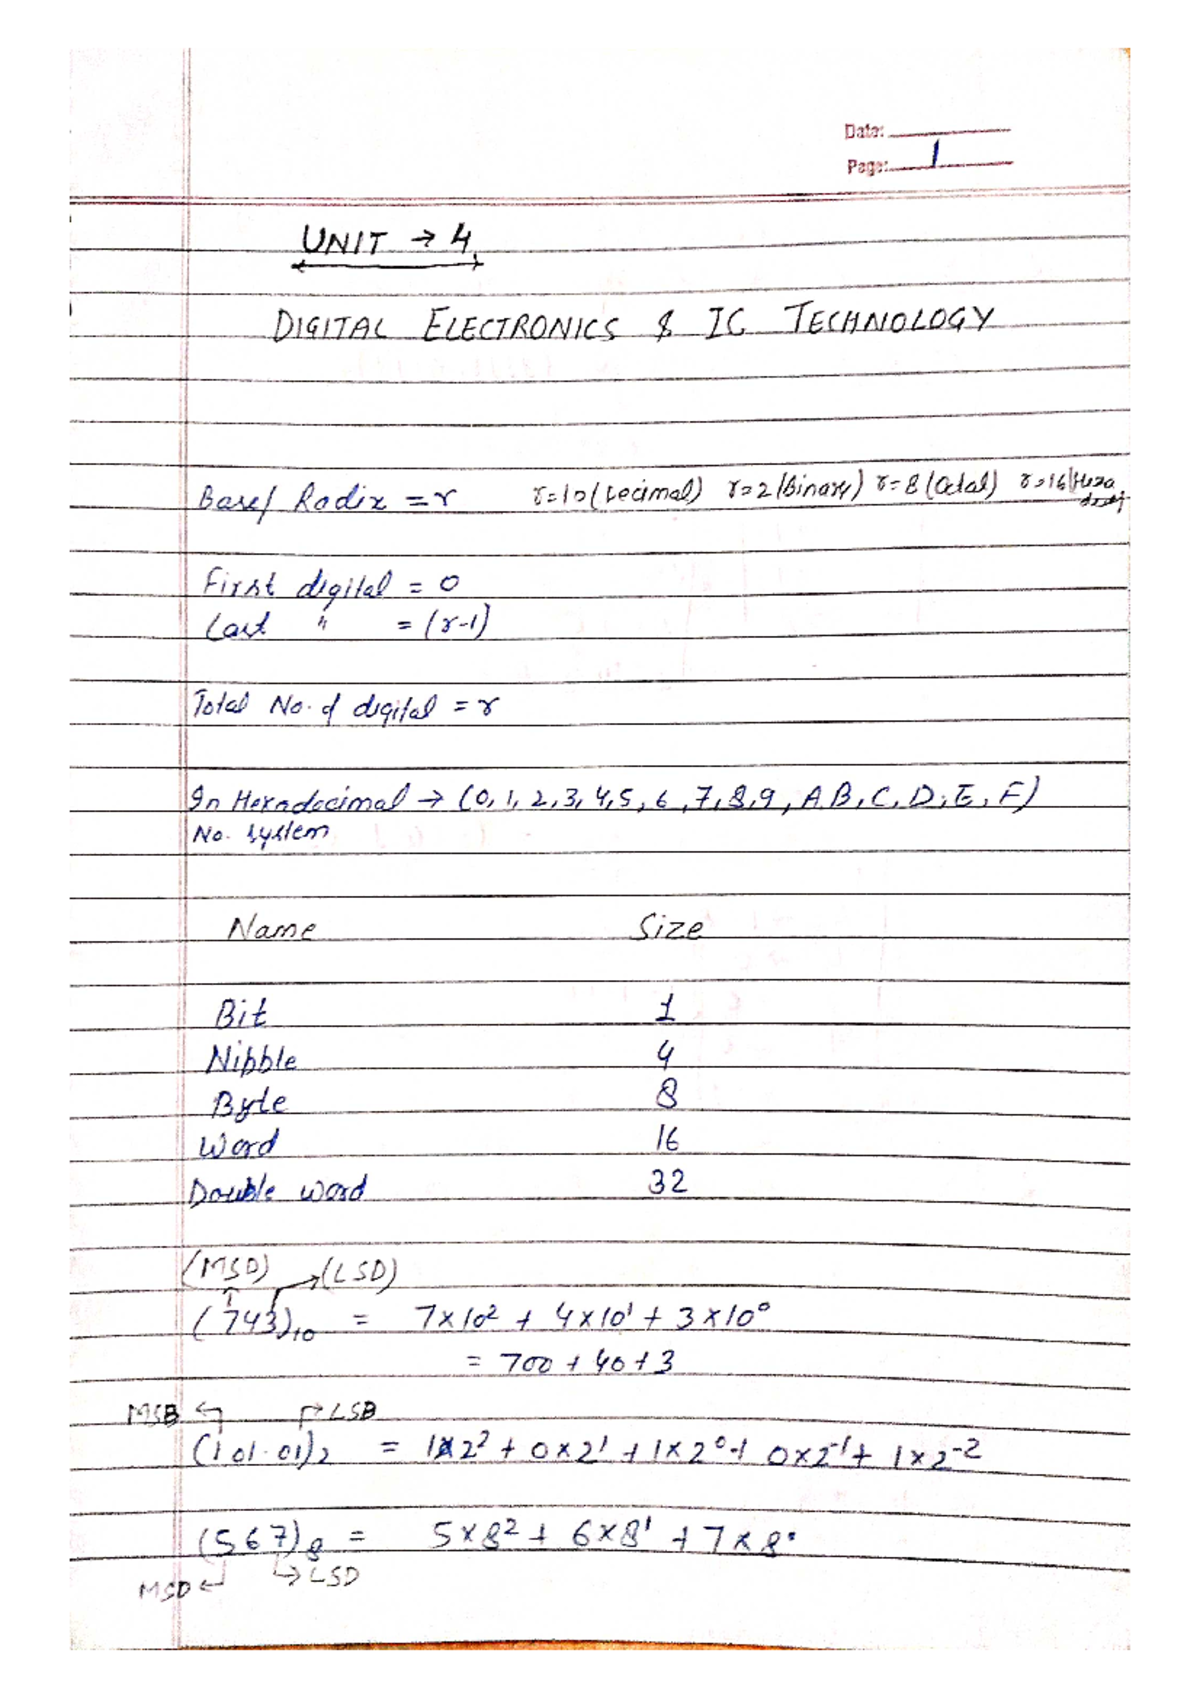 Date:
Page: 1
UNIT → 4
DIGITAL ELECTRONICS & IC TECHNOLOGY
Base/ Radix = r r=10 (Decimal) r=2 (Binary) r=8 (Octal) r=16 (Hexa
First digital = 0
Last " = (r-1)
Total No. of digital = r
In Hexadecimal → (0, 1, 2, 3, 4, 5, 6, 7, 8, 9, A, B, C, D, E, F)
No. system
Name Size
Bit 1
Nibble 4
Byte 8
Word 16
Double word 32
(MSD) → (LSD)
(743)₁₀ = 7×10² + 4×10¹ + 3×10⁰
= 700 + 40 + 3
MSB ← → LSB
(101.01)₂ = 1×2² + 0×2¹ + 1×2⁰ + 0×2⁻¹ + 1×2⁻²
(567)₈ = 5×8² + 6×8¹ + 7×8⁰
MSD ← → LSD